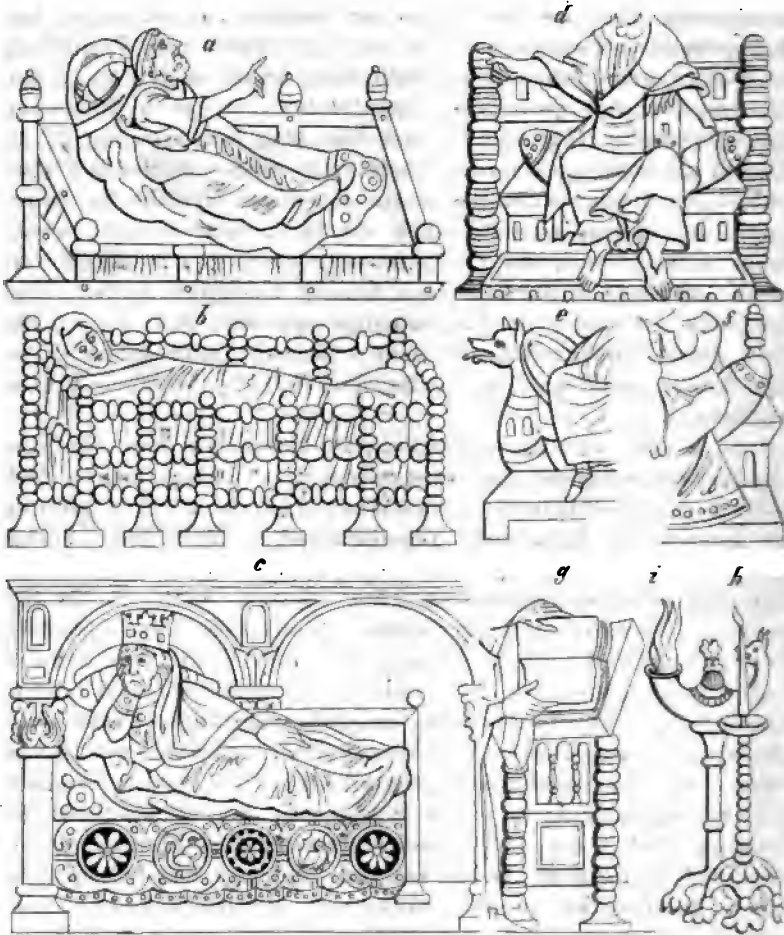 a d
b e f
c g i h